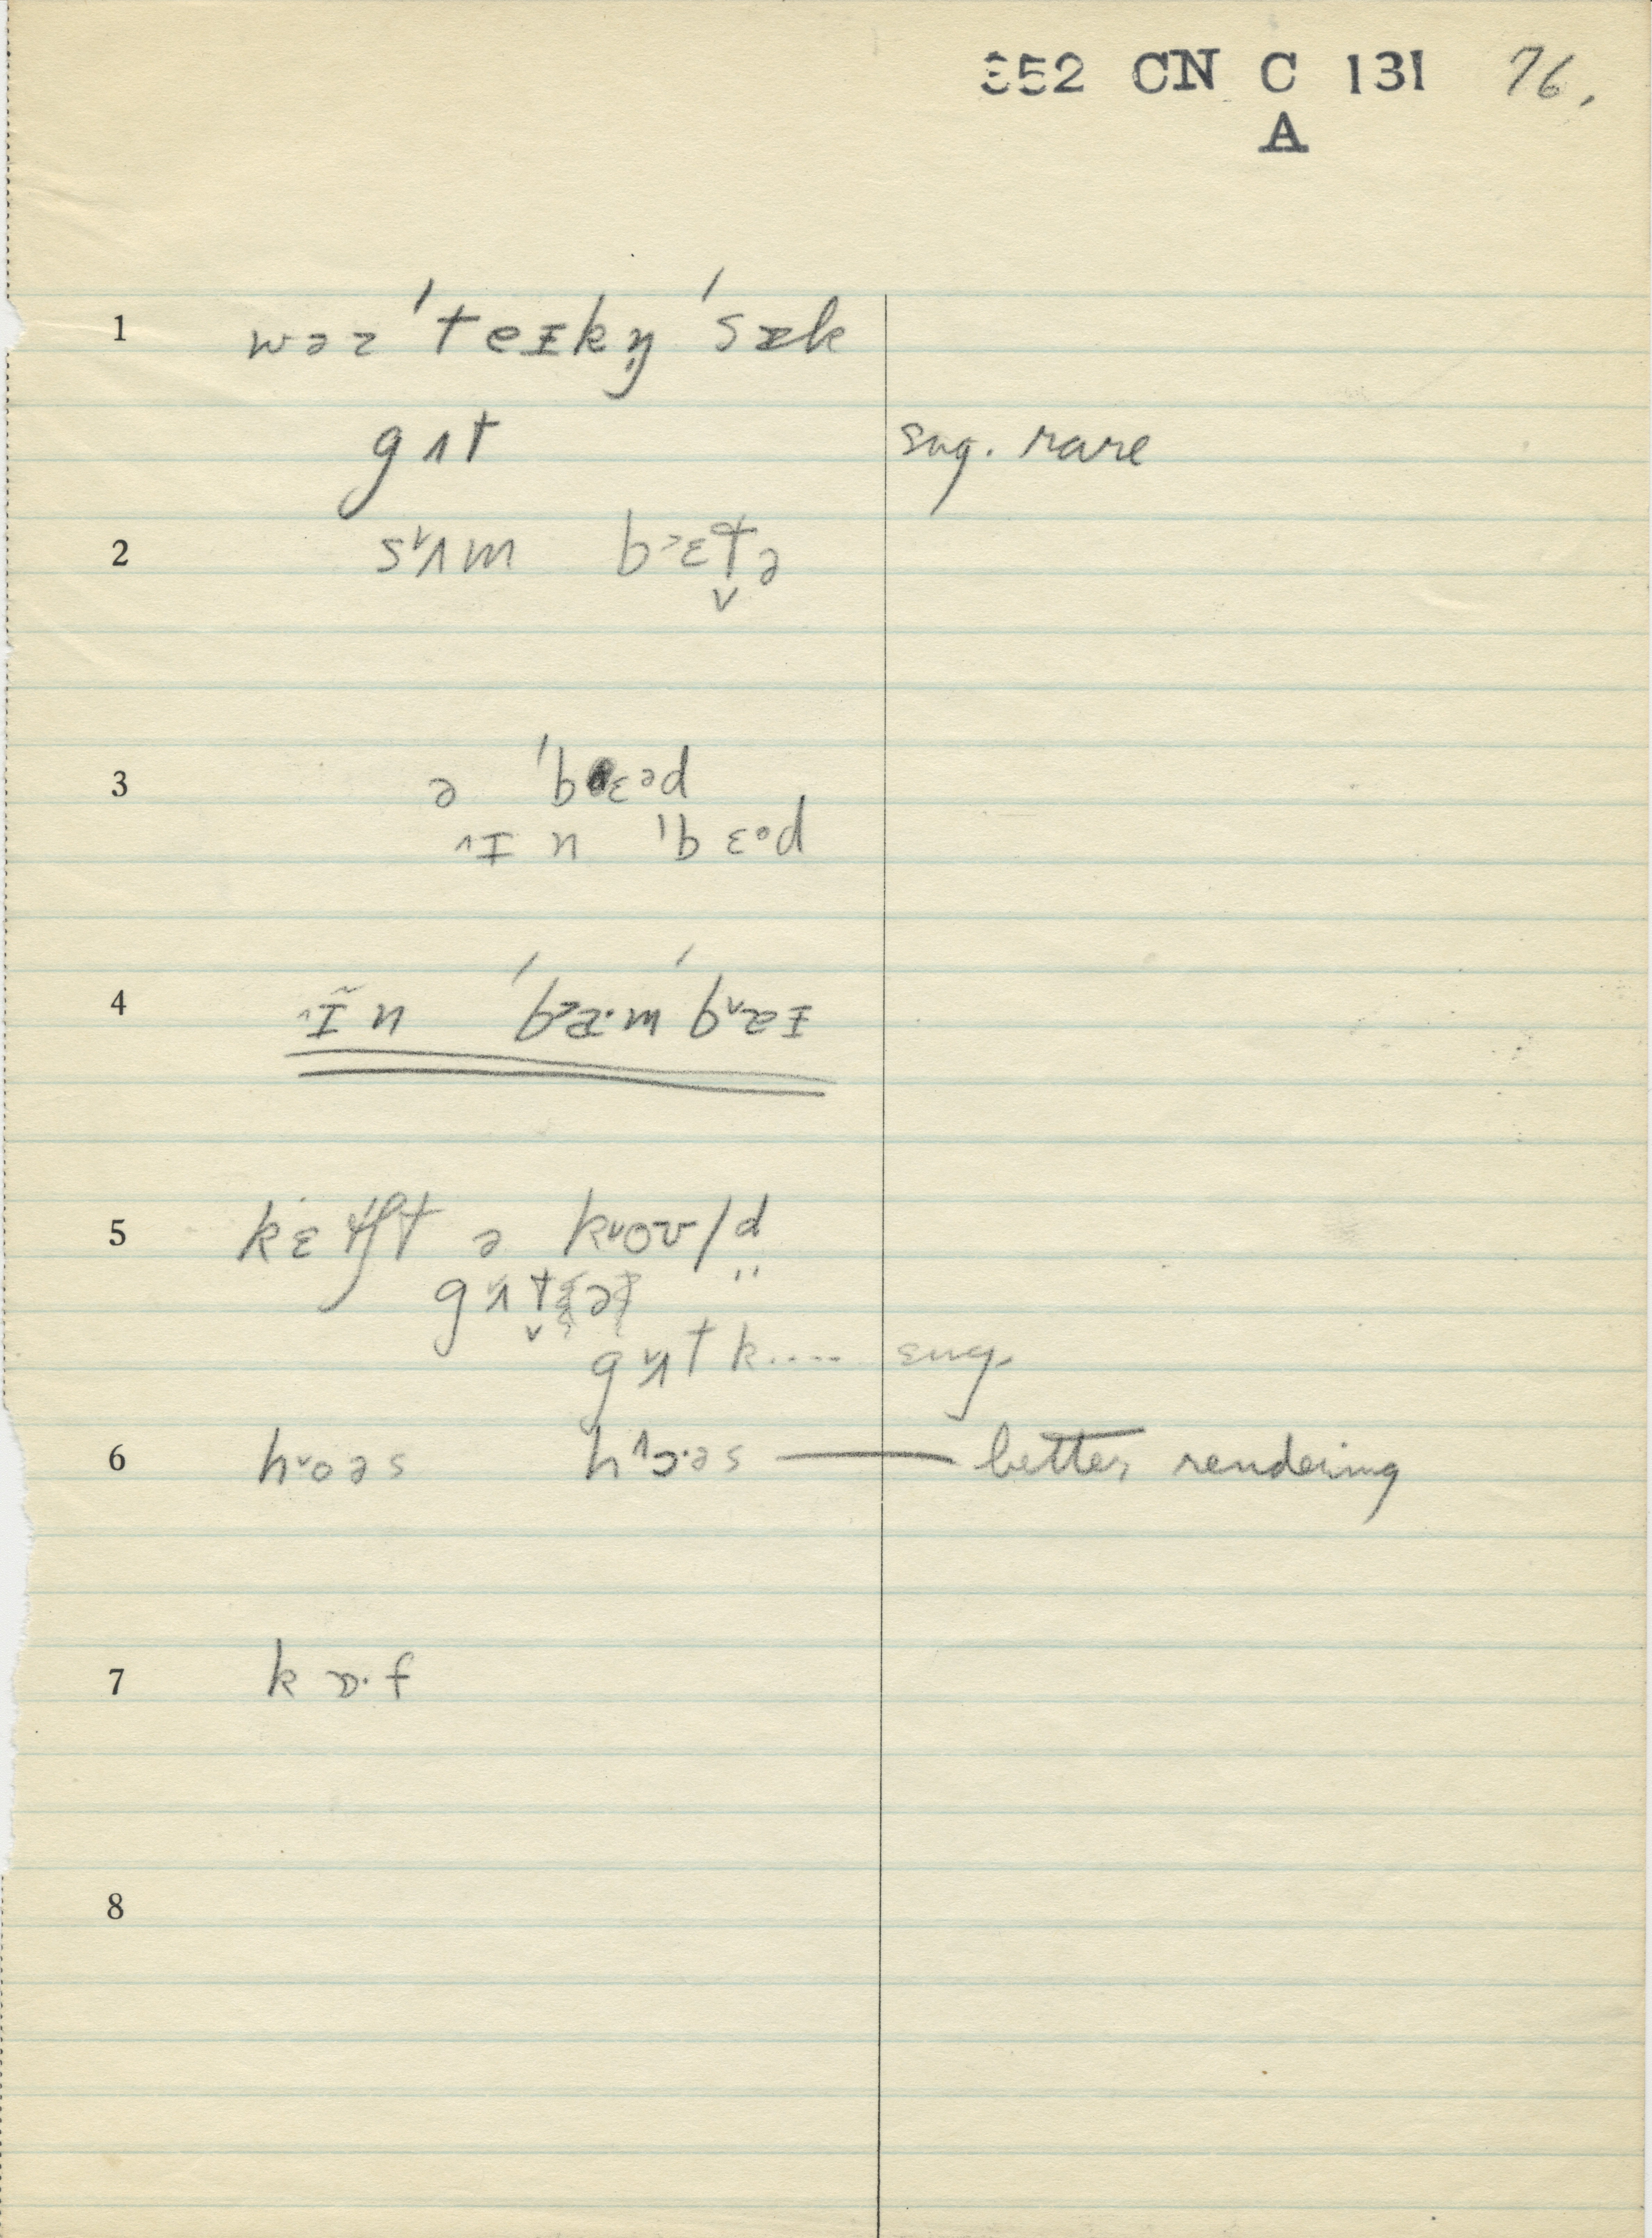 352 CN C 131 76.
A
1 wəz ˈteɪkn̩ ˈsɪk
gʌt sug. rare
2 sʌ˅m b˃ɛt̬ə
3 ə ˈbɛəd
˄ɪ n ˈbɛəd
4 ˄ɪ̃ n ˈb˃æ·mˈb˅æɪ
5 k ə k˅oʊld
gʌ˅t
gʌ˅t k.... sug.
6 h˅oəs h˄ɔ·əs — better rendering
7 k ɒ·f
8